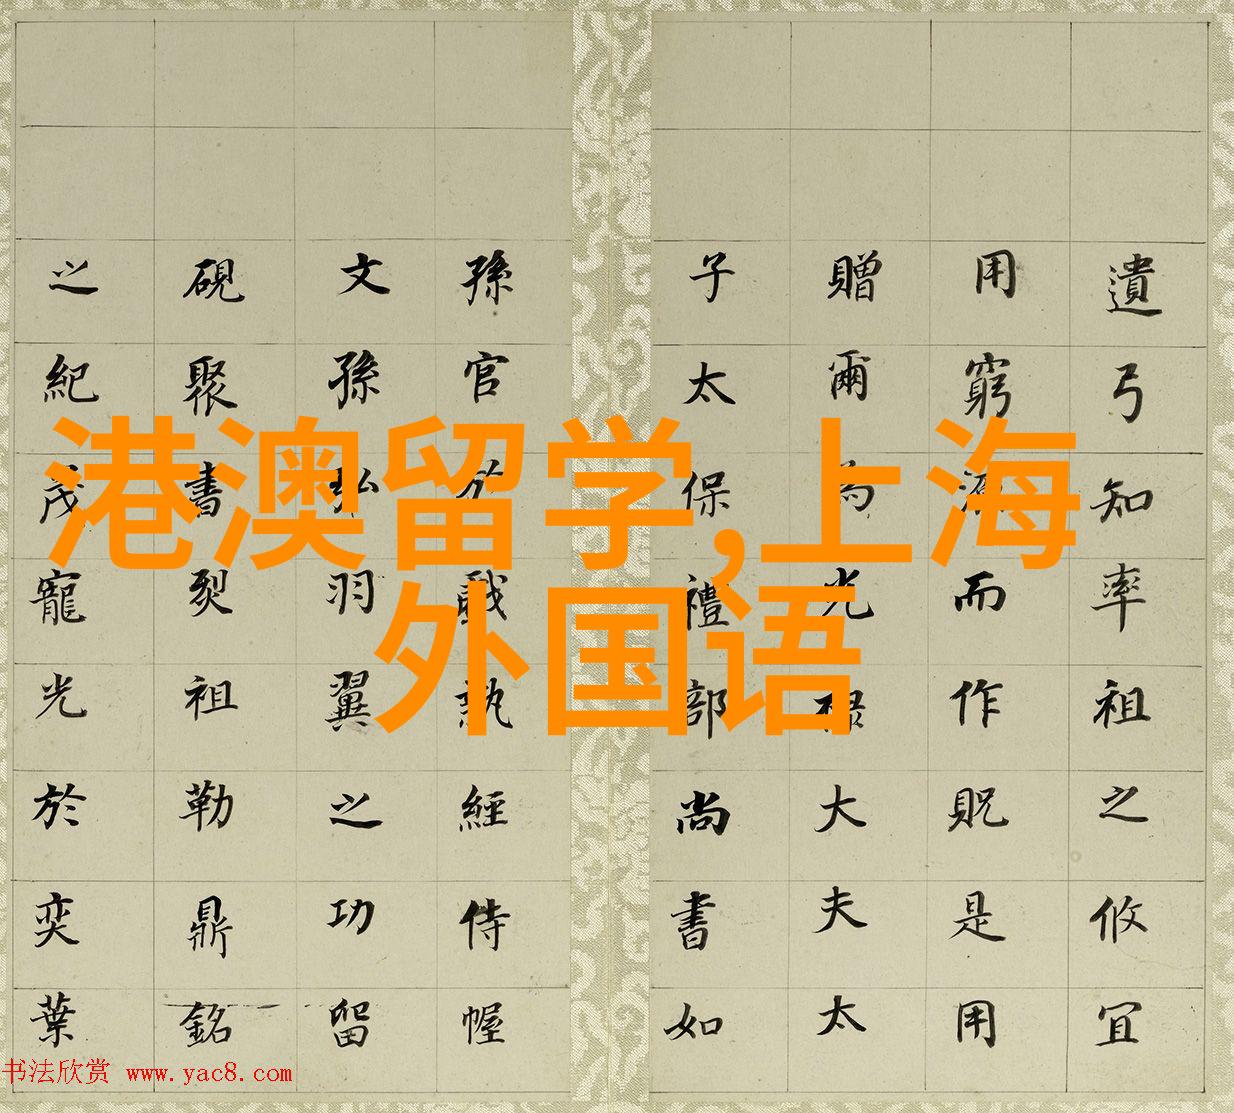 港澳留学,上海
外国语
遺弓知率祖之攸宜
用窮而作貺是用
贈爾為光祿大夫太
子太保禮部尚書如
孫官於戲執經侍幄
文孫弘羽翼之功留
硯聚書烈祖勒鼎銘
之紀茂寵光於奕葉
书法欣赏 www.yac8.com